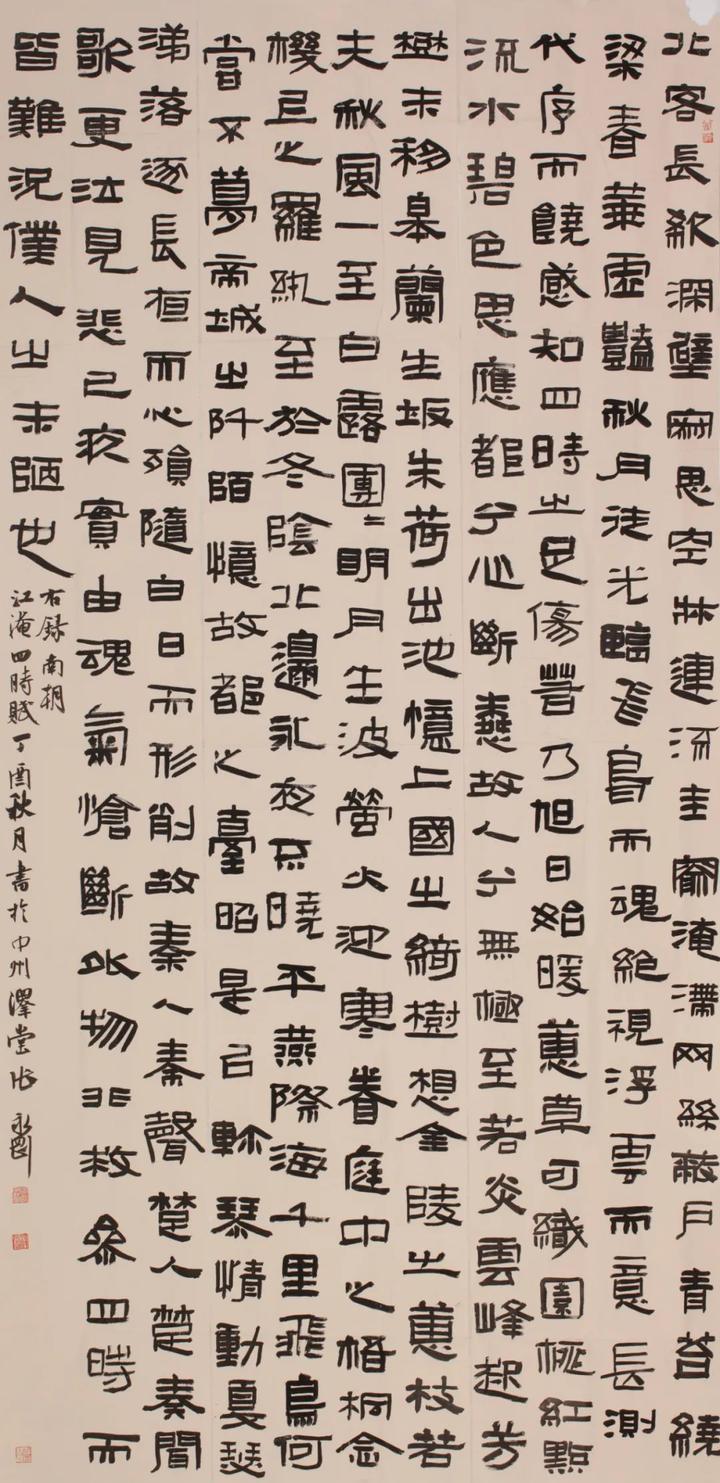 北客長欷深壁寂思空牀連流圭窬淹滯网絲蔽戶青苔繞
梁春華虛豔秋月徒光臨飛鳥而魂絕視浮雲而意長測
代序而饒感知四時之足傷若乃旭日始暖蕙草可織園桃紅點
流水碧色思應都兮心斷故人兮無極至若炎雲峰起芳
樹未移皋蘭生坂朱荷出池憶上國之綺樹想金陵之蕙枝若
夫秋風一至白露團〻明月生波螢火迎寒眷庭中之梧桐念
機之羅紈至於冬陰北邊永夜曉平燕際海千里飛鳥何
嘗不夢帝城之阡陌憶故都之臺昭是以軫琴情動戛瑟
涕落逐長而心殞隨白日而形削故秦人秦聲楚人楚奏聞
歌更泣見悲已疚實由魂氣愴斷外物非救參四時而
皆難況僕人之末陋也
右錄南朝
江淹四時賦丁酉秋月書於中州澤堂